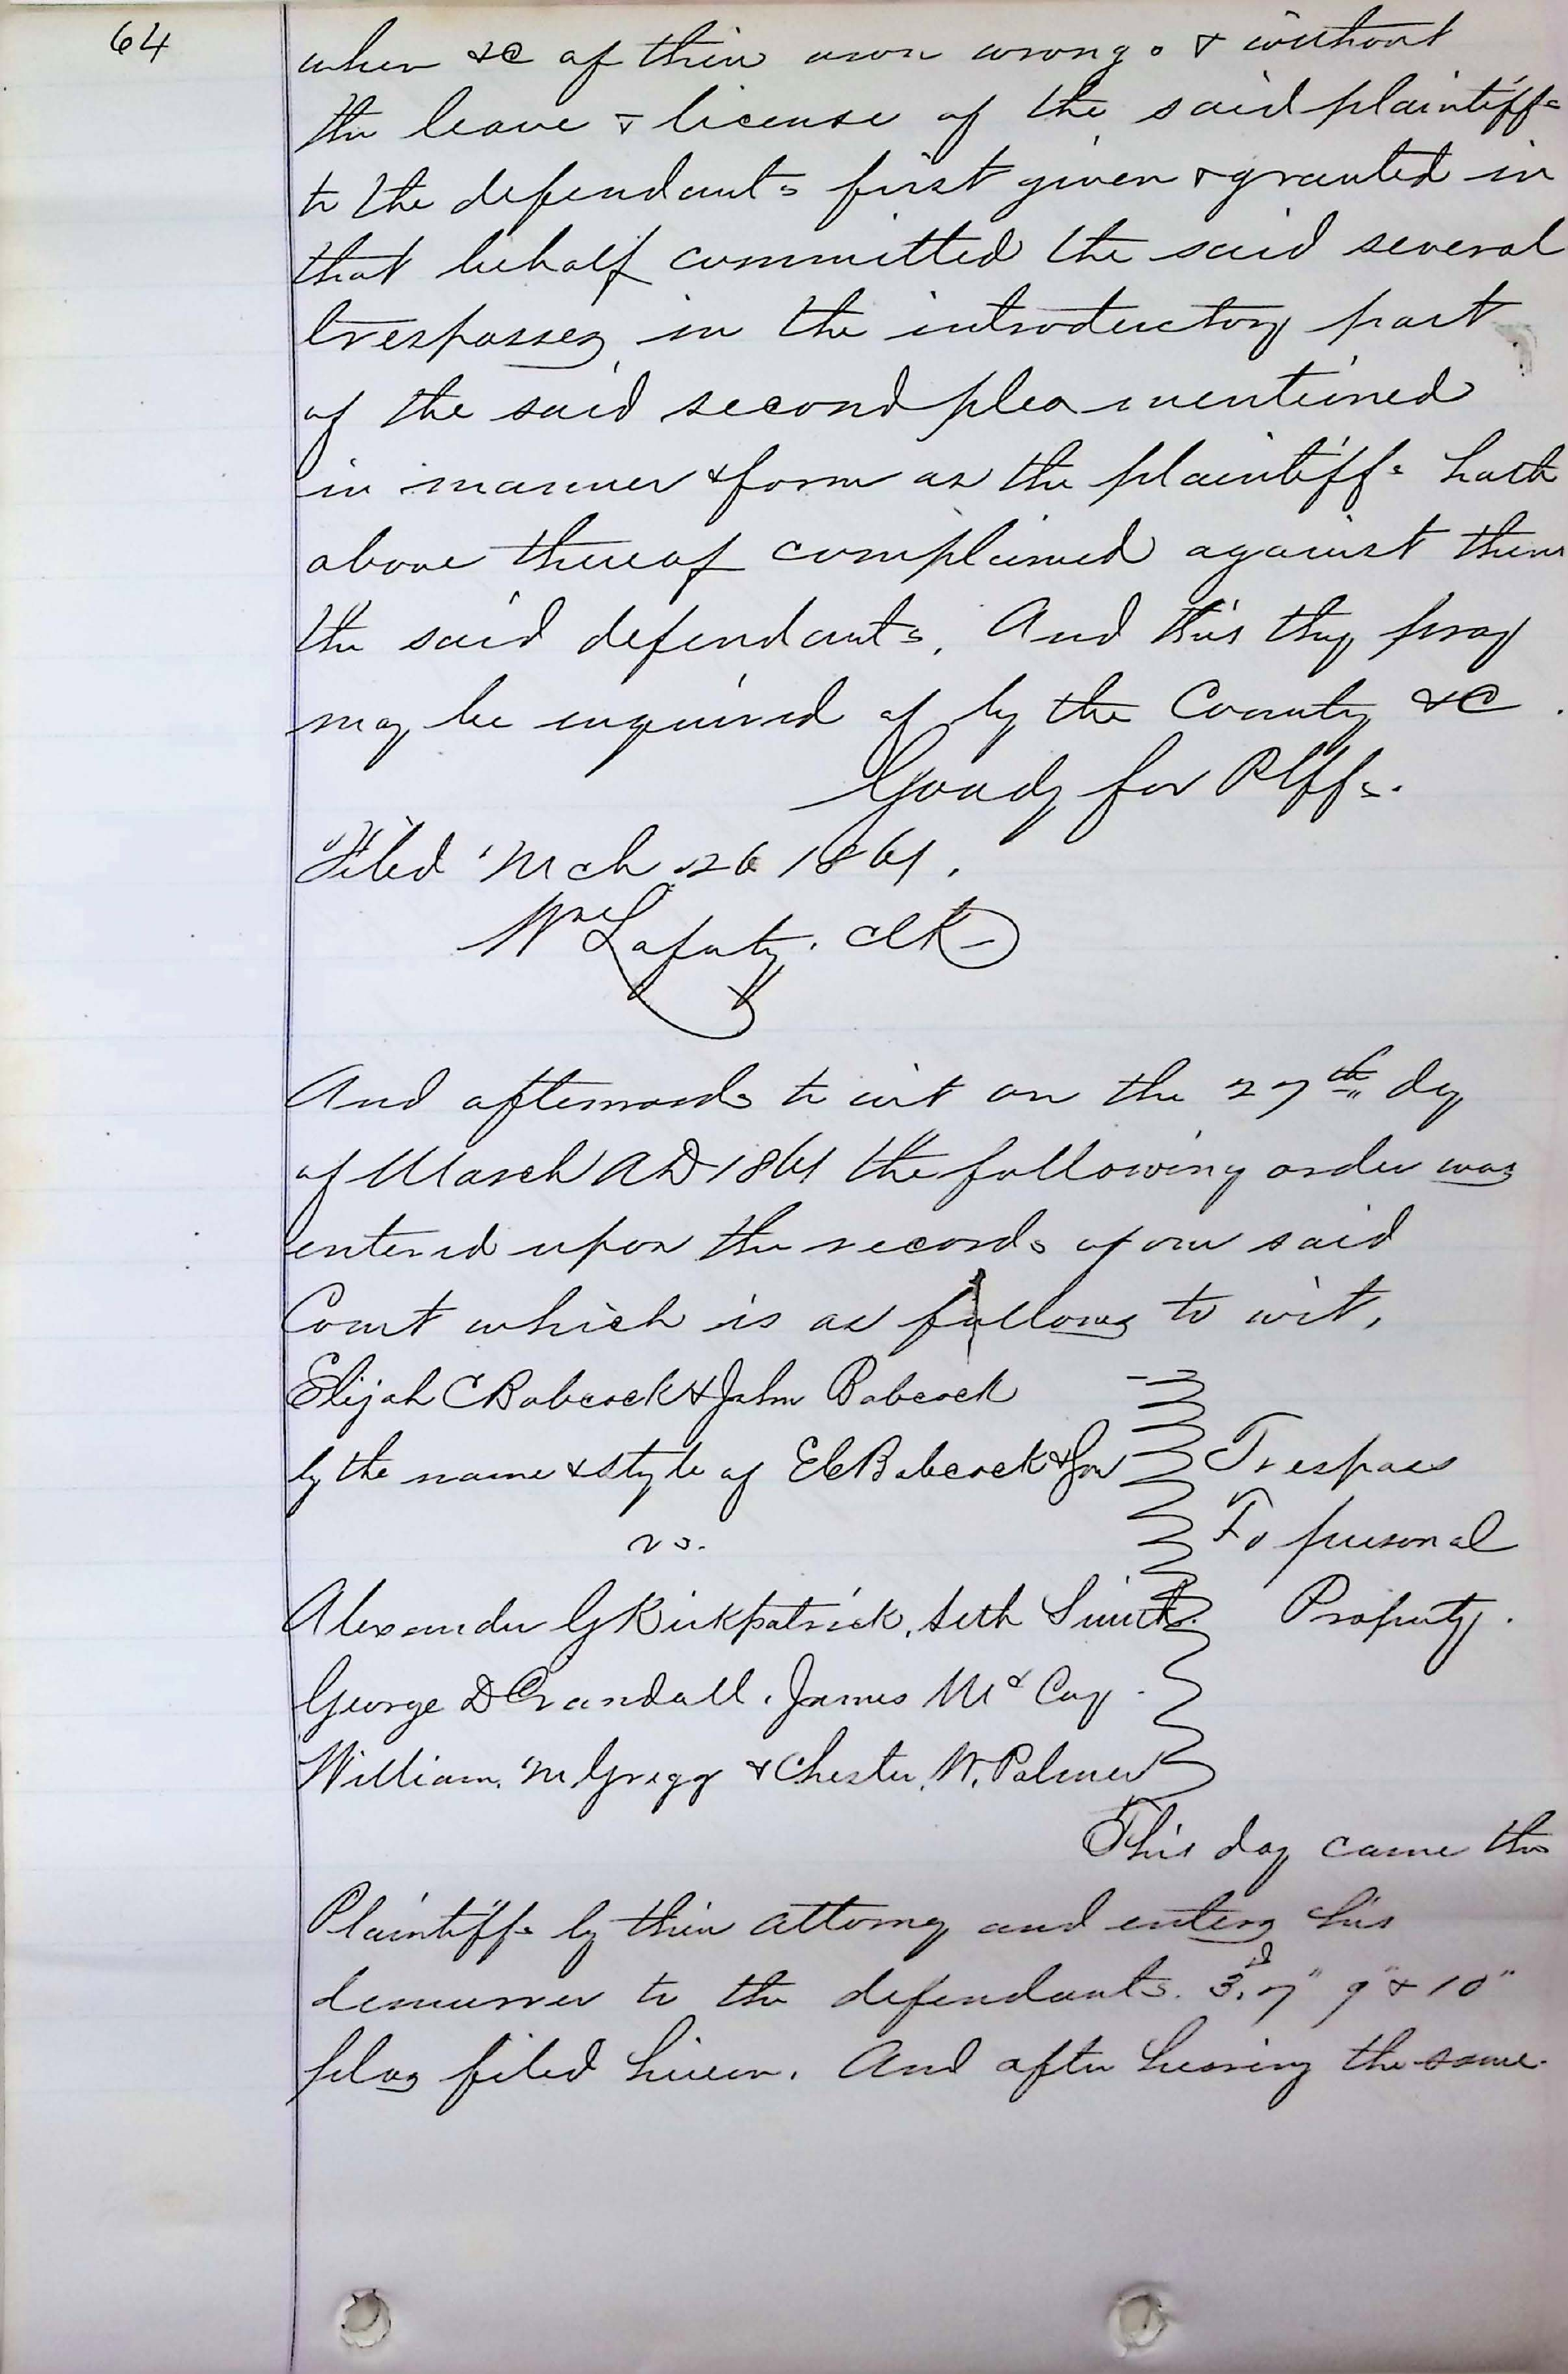 64
when &c of their own wrong & without
the leave & license of the said plaintiffs
to the defendants first given & granted in
that behalf committed the said several
trespasses in the introductory part
of the said second plea mentioned
in manner & form as the plaintiffs hath
above thereof complained against them
the said defendants. And this they pray
may be enquired of by the County &c.
Goudy for Plffs.
Filed Mch 26 1861.
Wm Lafferty. Clk
And afterwards to wit on the 27th day
of March AD 1861 the following order was
entered upon the records of our said
Court which is as follows to wit,
Elijah C Babcock & John Babcock
by the name & style of E C Babcock & Son
vs.
Trespass
To personal
Property.
Alexander G Kirkpatrick, Seth Smith.
George D Crandall, James McCoy.
William M Gregg & Chester W. Palmer
This day came the
Plaintiffs by their attorney and enters his
demurrer to the defendants. 3d, 7" 9" & 10"
pleas filed herein. And after hearing the same